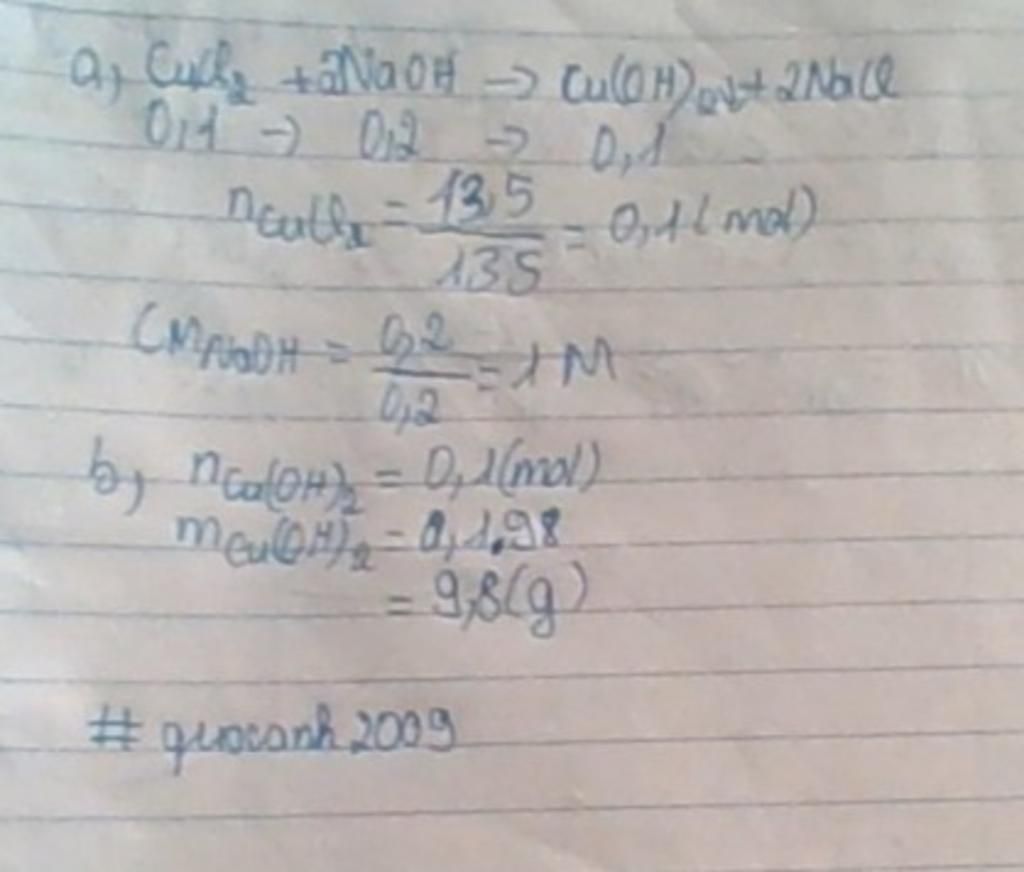 a, CuCl₂ + 2NaOH → Cu(OH)₂↓ + 2NaCl
0,1 → 0,2 → 0,1
nCuCl₂ = 13,5/135 = 0,1 (mol)
CM NaOH = 0,2/0,2 = 1 M
b, nCu(OH)₂ = 0,1 (mol)
mCu(OH)₂ = 0,1.98
= 9,8 (g)
# quocanh2009